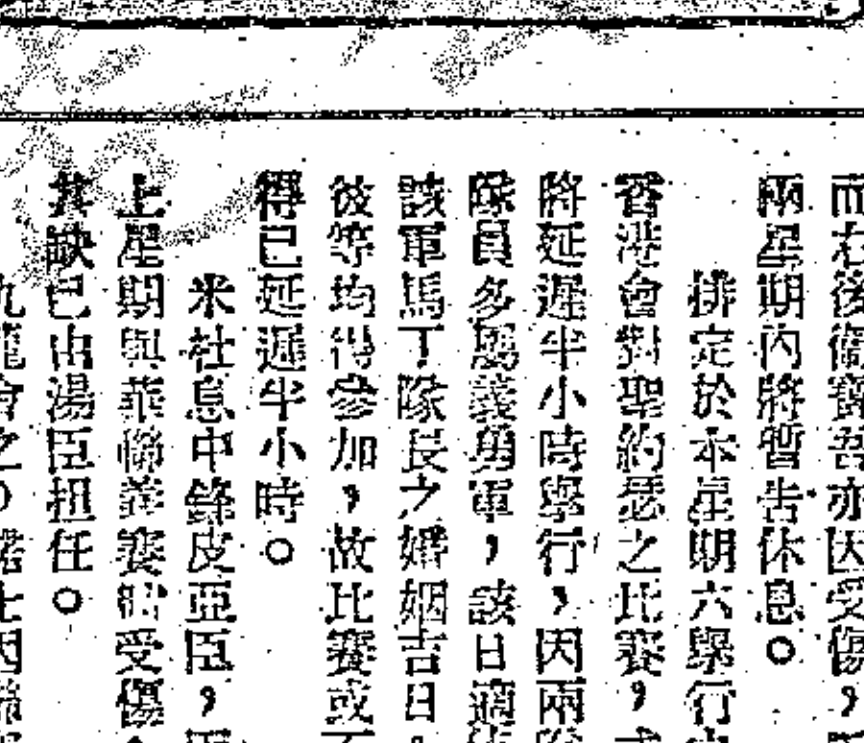 而右後衛賽吾亦因受傷，
兩星期內將暫告休息。
排定於本星期六舉行
香港會對聖約瑟之比賽，或
將延遲半小時舉行，因兩隊
隊員多屬義勇軍，該日適
該軍馬丁隊長之婚姻吉日，
彼等均得參加，故比賽或不
得已延遲半小時。
米杜息中鋒皮亞臣，因
上星期與菲聯善賽時受傷，
其缺已由湯臣担任。
九龍會之 諾士因